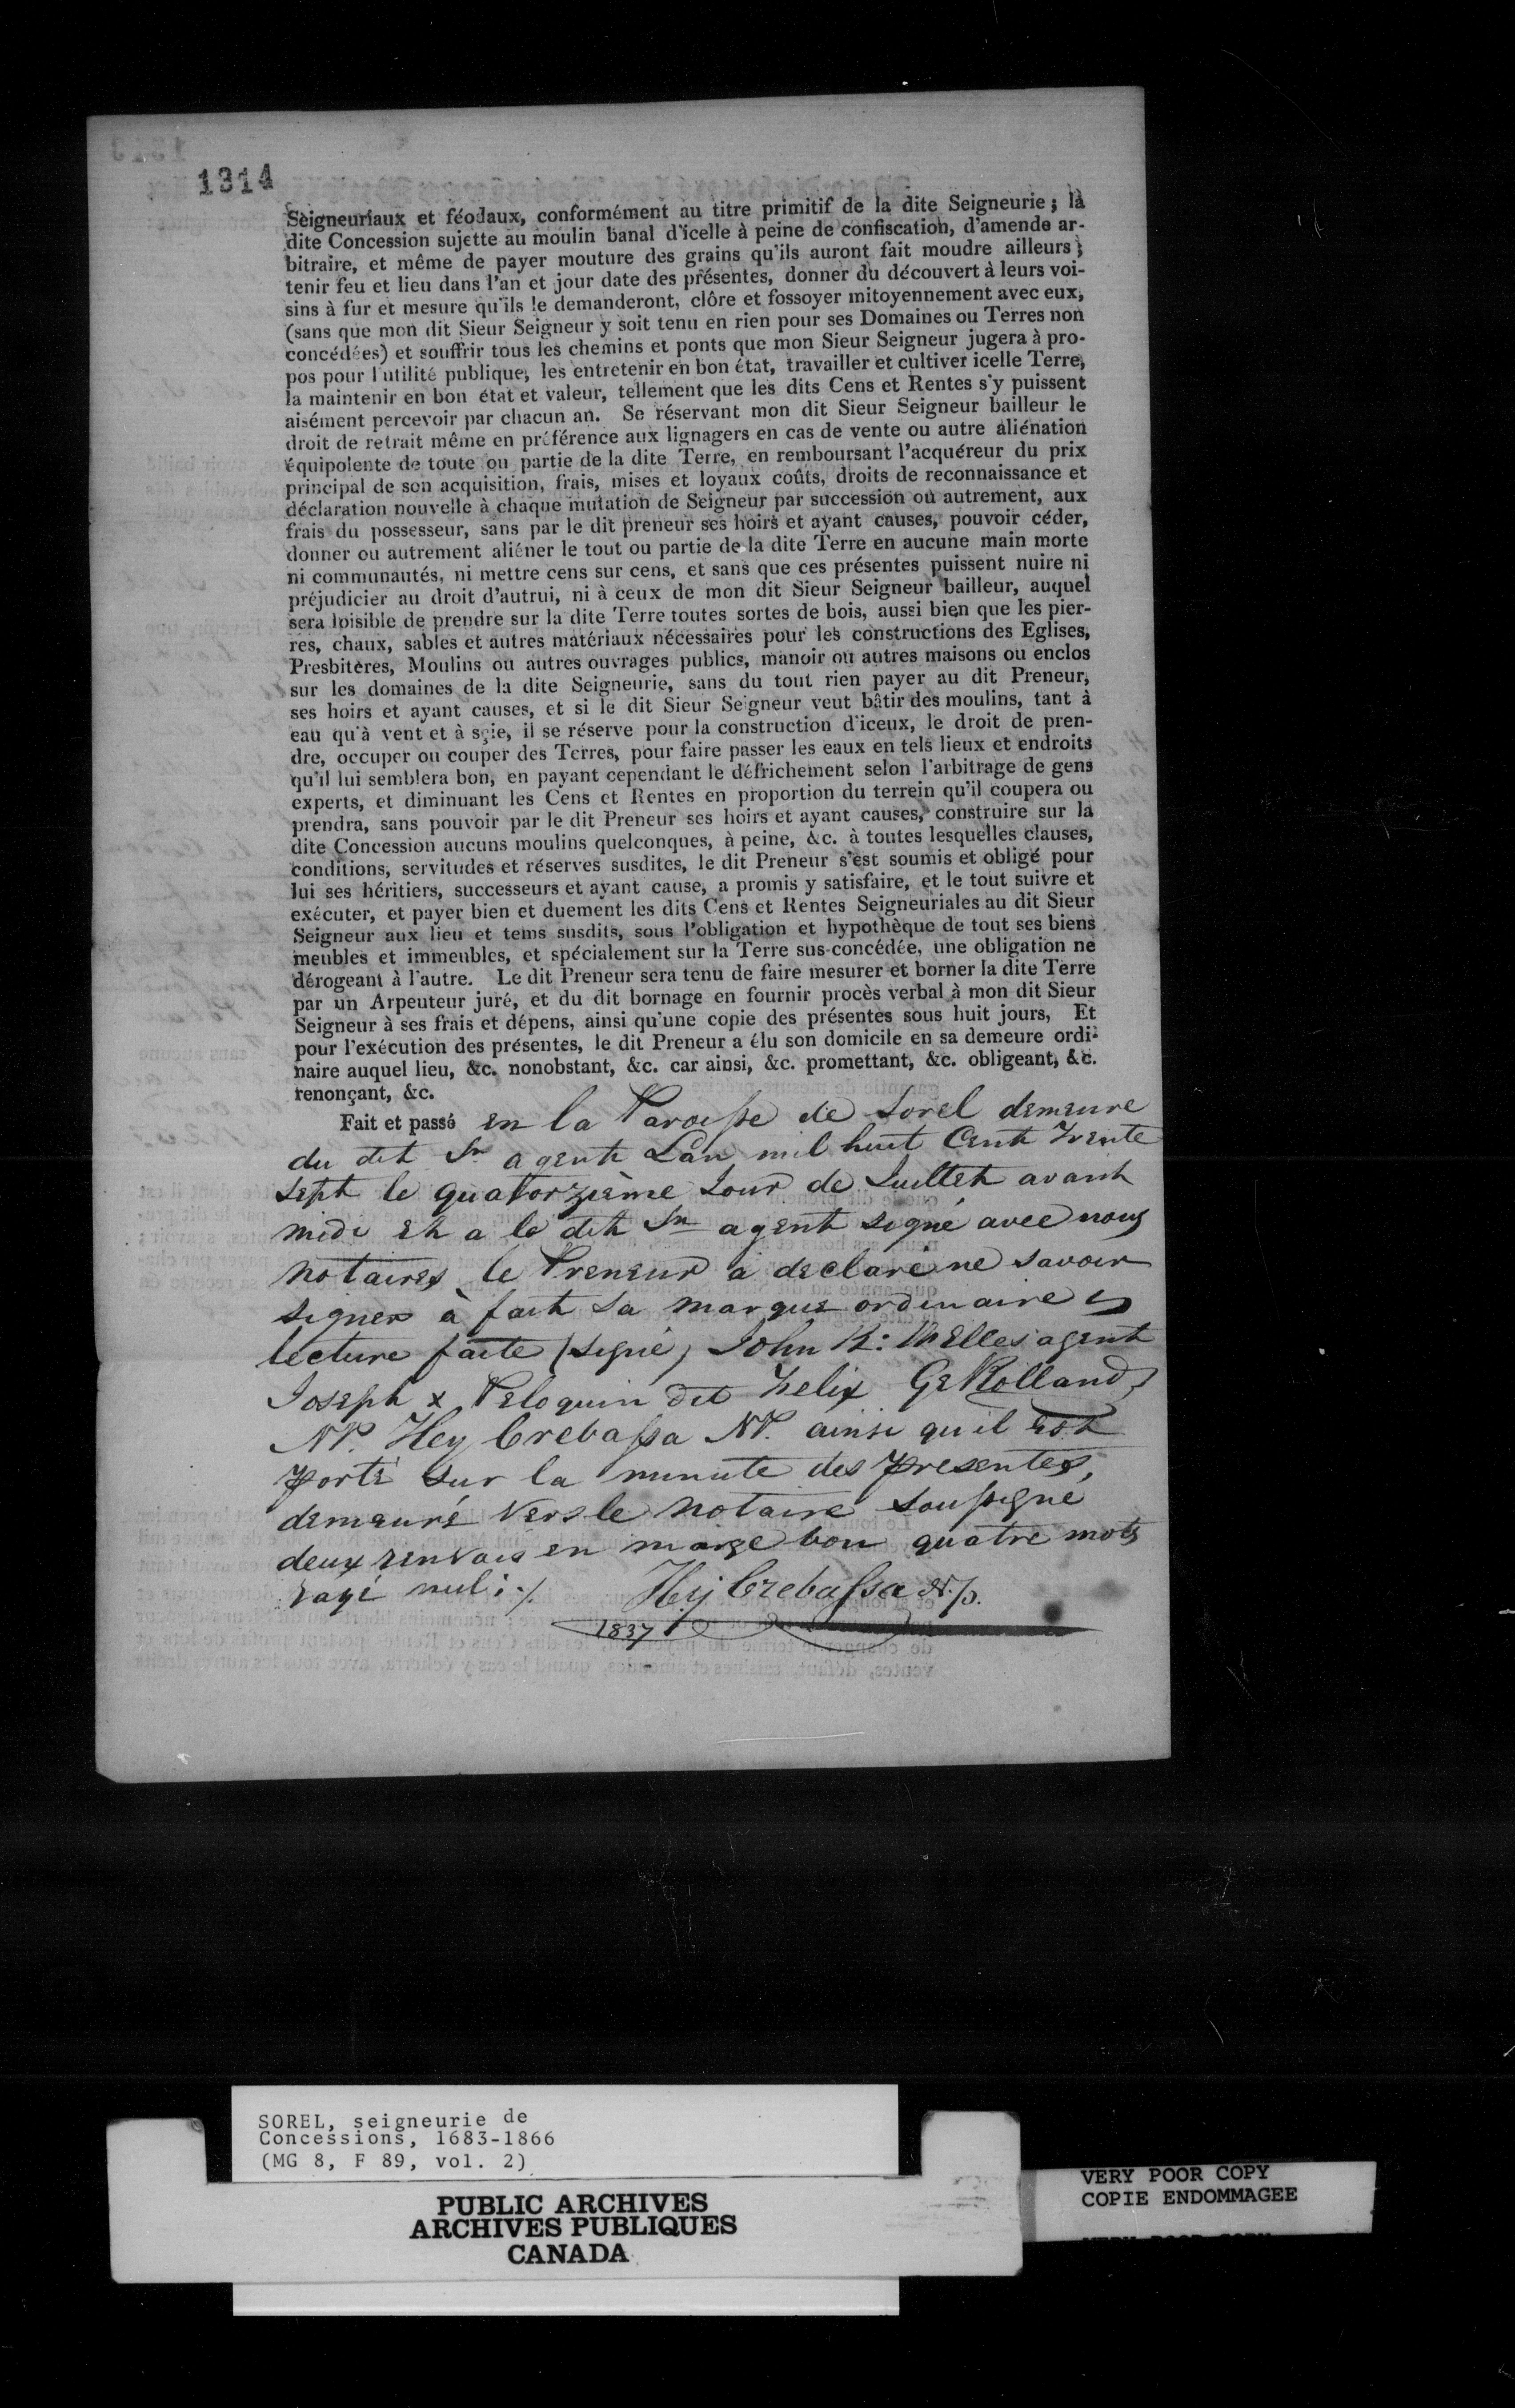 1314
Seigneuriaux et féodaux, conformément au titre primitif de la dite Seigneurie; la
dite Concession sujette au moulin banal d'icelle à peine de confiscation, d'amende ar-
bitraire, et même de payer mouture des grains qu'ils auront fait moudre ailleurs;
tenir feu et lieu dans l'an et jour date des présentes, donner du découvert à leurs voi-
sins à fur et mesure qu'ils le demanderont, clôre et fossoyer mitoyennement avec eux,
(sans que mon dit Sieur Seigneur y soit tenu en rien pour ses Domaines ou Terres non
concédées) et souffrir tous les chemins et ponts que mon Sieur Seigneur jugera à pro-
pos pour l'utilité publique, les entretenir en bon état, travailler et cultiver icelle Terre,
la maintenir en bon état et valeur, tellement que les dits Cens et Rentes s'y puissent
aisément percevoir par chacun an. Se réservant mon dit Sieur Seigneur bailleur le
droit de retrait même en préférence aux lignagers en cas de vente ou autre aliénation
équipolente de toute ou partie de la dite Terre, en remboursant l'acquéreur du prix
principal de son acquisition, frais, mises et loyaux coûts, droits de reconnaissance et
déclaration nouvelle à chaque mutation de Seigneur par succession ou autrement, aux
frais du possesseur, sans par le dit preneur ses hoirs et ayant causes, pouvoir céder,
donner ou autrement aliéner le tout ou partie de la dite Terre en aucune main morte
ni communautés, ni mettre cens sur cens, et sans que ces présentes puissent nuire ni
préjudicier au droit d'autrui, ni à ceux de mon dit Sieur Seigneur bailleur, auquel
sera loisible de prendre sur la dite Terre toutes sortes de bois, aussi bien que les pier-
res, chaux, sables et autres matériaux nécessaires pour les constructions des Eglises,
Presbitères, Moulins ou autres ouvrages publics, manoir ou autres maisons ou enclos
sur les domaines de la dite Seigneurie, sans du tout rien payer au dit Preneur,
ses hoirs et ayant causes, et si le dit Sieur Seigneur veut bâtir des moulins, tant à
eau qu'à vent et à sçie, il se réserve pour la construction d'iceux, le droit de pren-
dre, occuper ou couper des Terres, pour faire passer les eaux en tels lieux et endroits
qu'il lui semblera bon, en payant cependant le défrichement selon l'arbitrage de gens
experts, et diminuant les Cens et Rentes en proportion du terrein qu'il coupera ou
prendra, sans pouvoir par le dit Preneur ses hoirs et ayant causes, construire sur la
dite Concession aucuns moulins quelconques, à peine, &c. à toutes lesquelles clauses,
conditions, servitudes et réserves susdites, le dit Preneur s'est soumis et obligé pour
lui ses héritiers, successeurs et ayant cause, a promis y satisfaire, et le tout suivre et
exécuter, et payer bien et duement les dits Cens et Rentes Seigneuriales au dit Sieur
Seigneur aux lieu et tems susdits, sous l'obligation et hypothèque de tout ses biens
meubles et immeubles, et spécialement sur la Terre sus-concédée, une obligation ne
dérogeant à l'autre. Le dit Preneur sera tenu de faire mesurer et borner la dite Terre
par un Arpeuteur juré, et du dit bornage en fournir procès verbal à mon dit Sieur
Seigneur à ses frais et dépens, ainsi qu'une copie des présentes sous huit jours, Et
pour l'exécution des présentes, le dit Preneur a élu son domicile en sa demeure ordi-
naire auquel lieu, &c. nonobstant, &c. car ainsi, &c. promettant, &c. obligeant, &c.
renonçant, &c.
Fait et passé en la Paroisse de Sorel demeure
du dit Sr agent Lan mil huit Cent Trente
Sept le quatorzième Jour de Juillet avant
midi et a le dit Sr agent signé avec nous
notaires le Preneur a declaré ne savoir
signer à fait sa marque ordinaire
lecture faite (signé) John K: Welles agent
Joseph x Peloquin dit Felix Ge Rolland
NP. Hey Crebassa NP. ainsi qu il est
porté sur la minute des presentes,
demeuré vers le notaire soussigné
deux renvois en marge bon quatre mots
rayé nul :/. Hey Crebassa N.p.
1837
SOREL, seigneurie de
Concessions, 1683-1866
(MG 8, F 89, vol. 2)
PUBLIC ARCHIVES
ARCHIVES PUBLIQUES
CANADA
VERY POOR COPY
COPIE ENDOMMAGEE